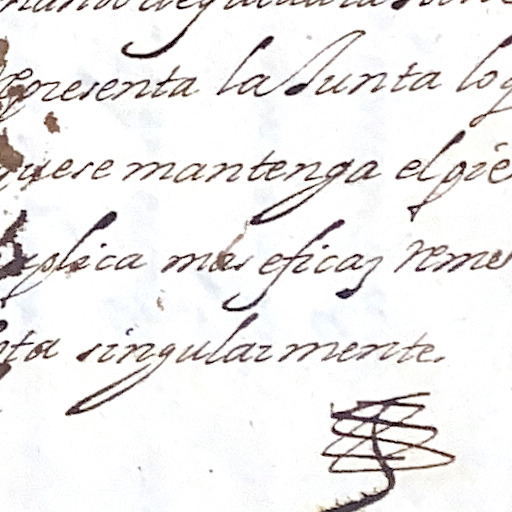 representa la Junta lo q
quese mantenga el pie
suplica mas eficaz reme
ta singularmente.